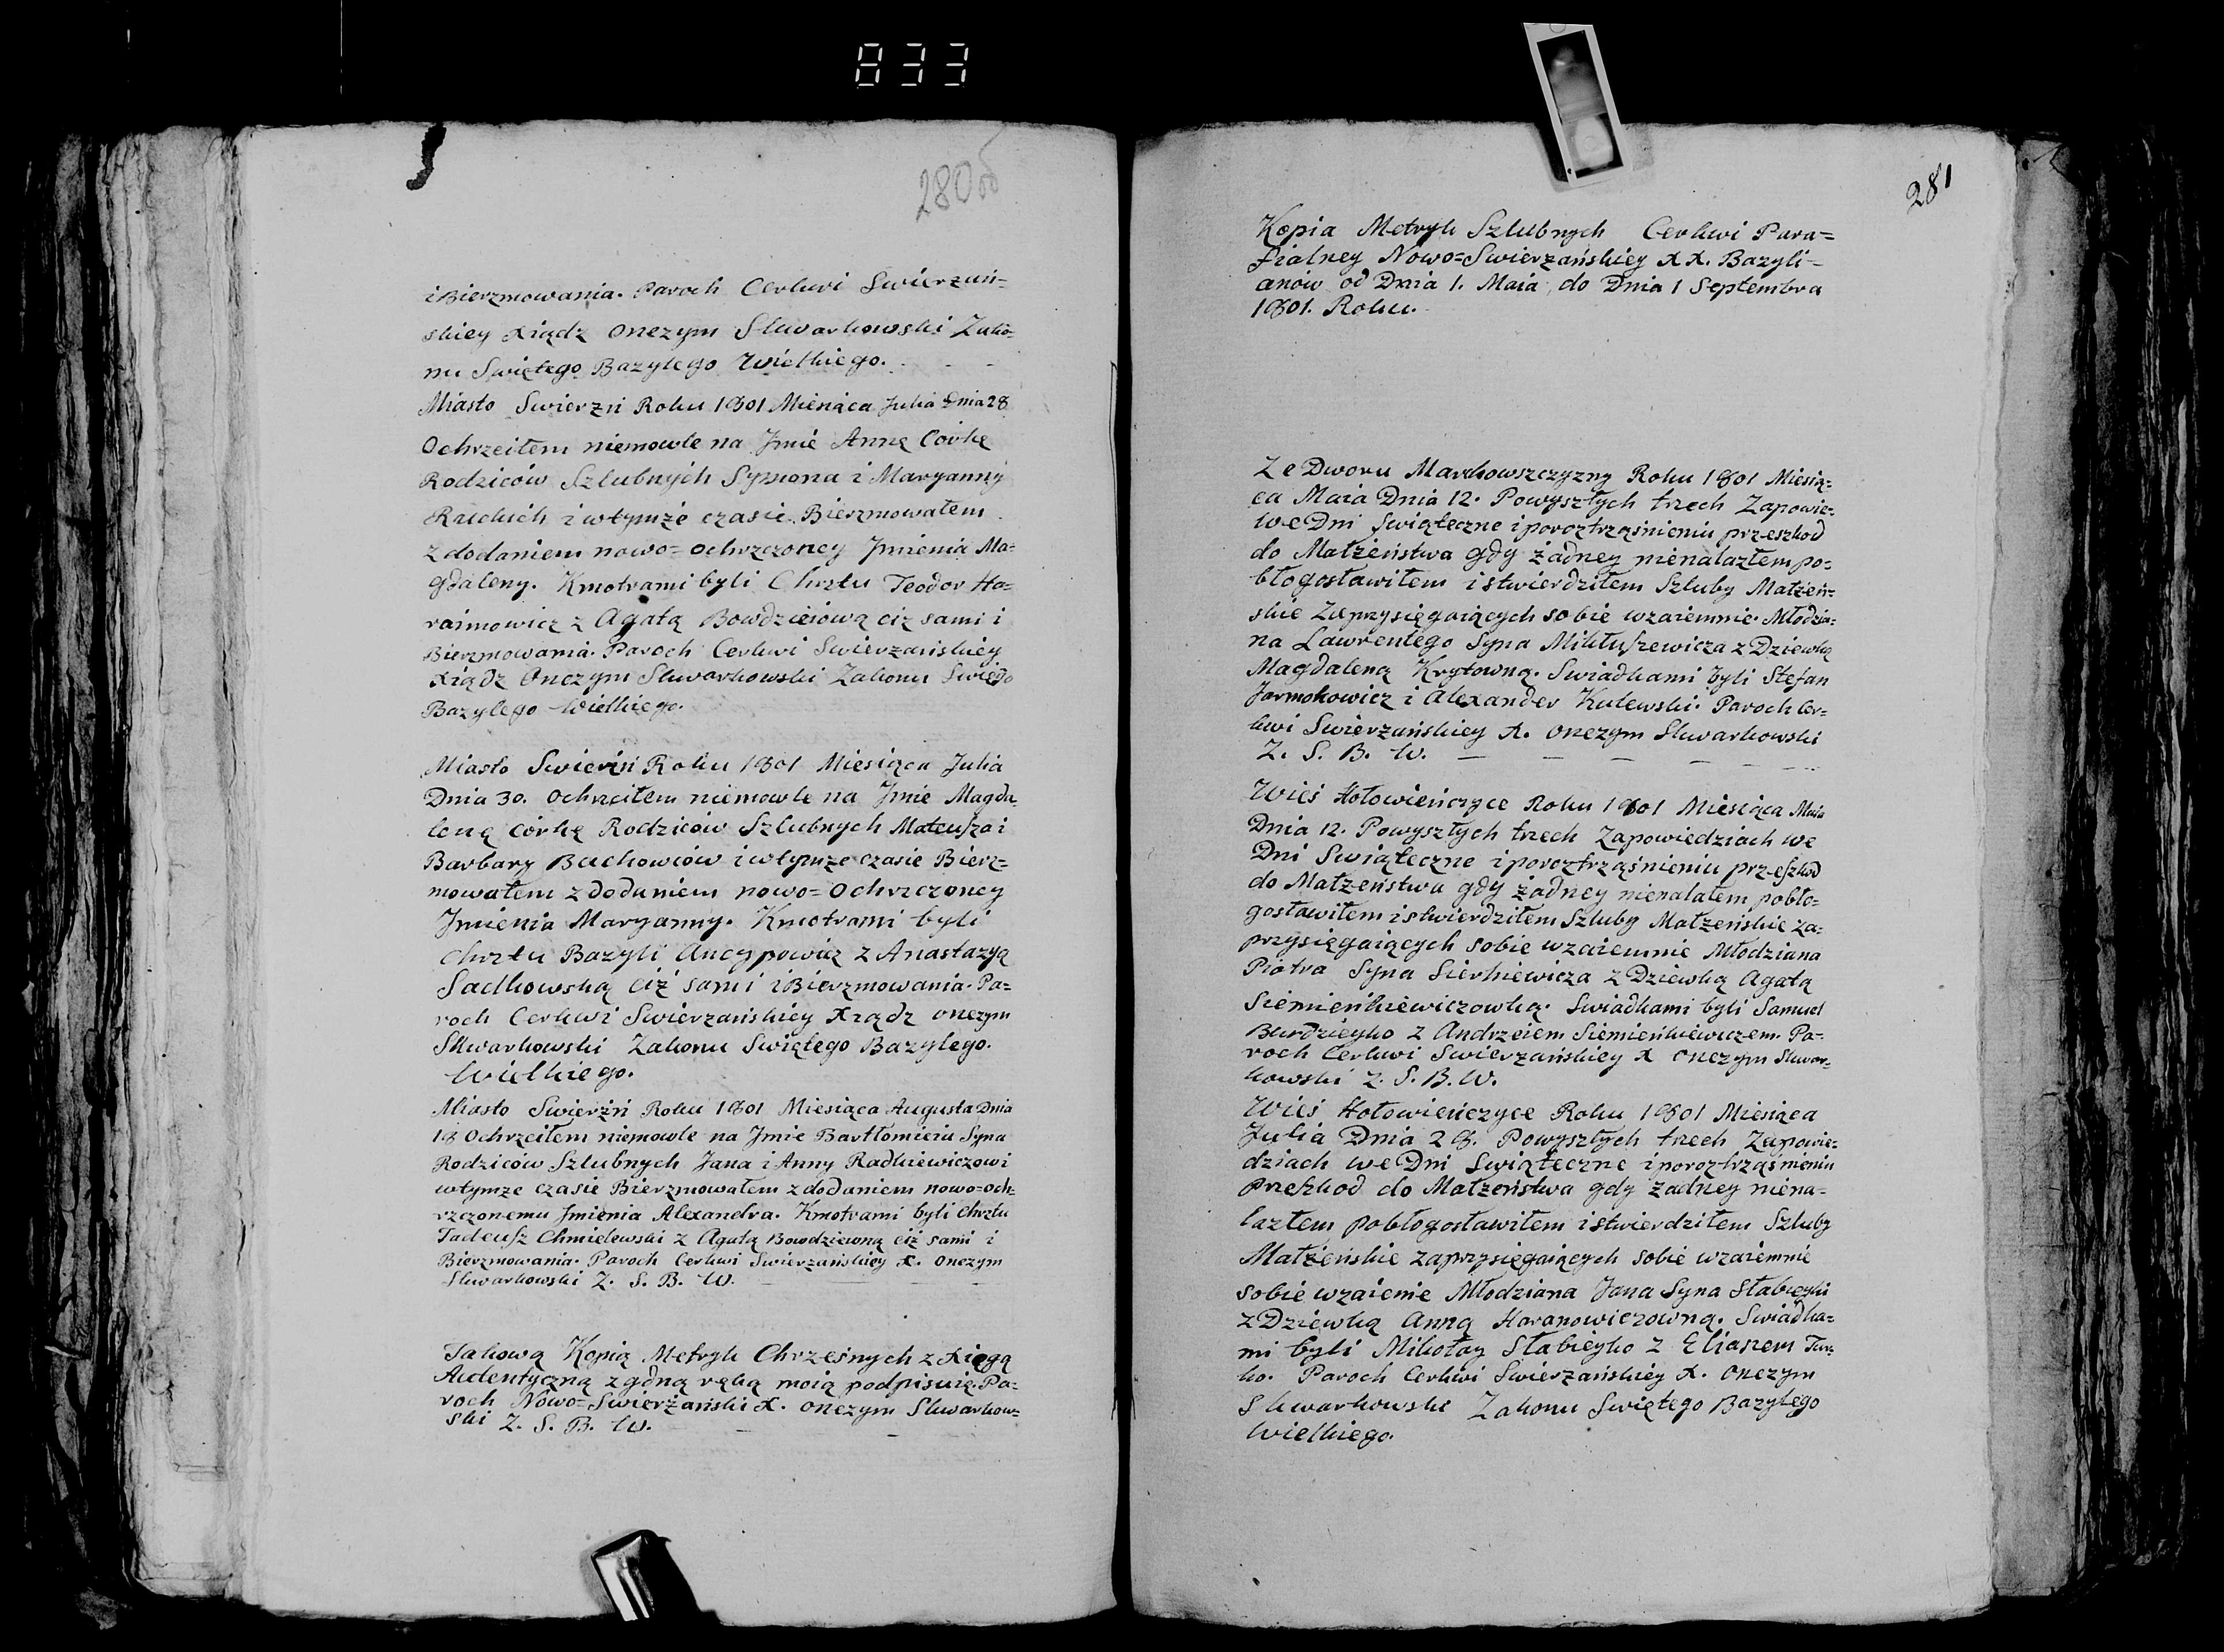 833
280об
iBierzmowania. Paroch Cerkwi Swierzań=
skiey Xiądz Onezym Skwarkowski Zako=
nu Swiętego Bazylego Wielkiego.
Miasto Swierzń Roku 1801 Miesiąca Julia Dnia 28
Ochrzciłem niemowle na Jmie Annę Córkę
Rodziców Szlubnych Symona i Maryanny
iwtymże czasie Bierzmowałem
z dodaniem nowo=ochrzczoney Jmienia Ma=
gdaleny. Kmotrami byli Chrztu Teodor Ha=
raimowicz z Agatą Bowdzieiową ciż sami i
Bierzmowania. Paroch Cerkwi Swierzańskiey
Xiądz Onezym Skwarkowski Zakonu Swięgo
Bazylego Wielkiego.
Miasto Swierżń Roku 1801 Miesiąca Julia
Dnia 30. Ochrzciłem niemowle na Jmie Magda
lenę córkę Rodziców Szlubnych Mateusza i
Barbary Buchowiów iwtymże czasie Bierz=
mowałem z dodaniem nowo=Ochrzczoney
Jmienia Maryanny. Kmotrami byli
Chrztu Bazyli Ancypowicz z Anastazyą
Sadkowską ciż sami iBierzmowania. Pa=
roch Cerkwi Swierzańskiey Xiądz Onezym
Skwarkowski Zakonu Swiętego Bazylego.
Wielkiego.
Miasto Swierżń Roku 1801 Miesiąca Augusta Dnia
18 Ochrzciłem niemowle na Jmie Bartłomieia Syna
Rodziców Szlubnych Jana i Anny Radkiewiczowi
wtymże czasie Bierzmowałem z dodaniem nowo=och=
rzczonemu Jmienia Alexandra. Kmotrami byli Chrztu
Tadeusz Chmielewski z Agatą Bowdziewną ciż sami i
Bierzmowania. Paroch Cerkwi Swierzańskiey X. Onezym
Skwarkowski Z. S. B. W.
Takową Kopią Metryk Chrzesnych z Xięgą
Autentyczną zgdną ręką moią podpisuię. Pa=
roch Nowo=Swierżański X. Onezym Skwarkow=
ski Z. S. B. W.
281
Kopia Metryk Szlubnych Cerkwi Para=
fialney Nowo=Swierzańskiey XX. Bazyli=
anów od Dnia 1. Maia, do Dnia 1 Septembra
1801. Roku.
Ze Dworu Markowszczyzny Roku 1801 Miesią=
ca Maia Dnia 12. Powyszłych trzech Zapowie=
we Dni Swiąteczne iporoztrząśnieniu przeszkod
do Małżeństwa gdy żadney nienalazłem po=
błogosławiłem istwierdziłem Szluby Małżeń=
skie Zaprzysięgaiących sobie wzaiemnie. Młodzia=
na Lawrentego Syna Mikłuszewicza z Dziewką
Magdaleną Krytowną. Swiadkami byli Stefan
Jarmokowicz i Alexander Kutewski. Paroch Cer=
kwi Swierzańskiey X. Onezym Skwarkowski
Z. S. B. W.
Wieś Hołowieńczyce Roku 1801 Miesiąca Maia
Dnia 12. Powyszłych trzech Zapowiedziach we
Dni Swiąteczne iporoztrząśnieniu przeszkod
do Małżeństwa gdy żadney nienalałem pobło=
gosławiłem istwierdziłem Szluby Małżeńskie Za=
przysięgaiących sobie wzaiemnie Młodziana
Piotra Syna Sierkiewicza z Dziewką Agatą
Siemieńkiewiczowką. Swiadkami byli Samuel
Burdzieyko z Andrzeiem Siemieńkiewiczem. Pa=
roch Cerkwi Swierzańskiey X Onezym Skwar=
kowski Z. S. B. W.
Wieś Hołowieńczyce Roku 1801 Miesiąca
Julia Dnia 28. Powyszłych trzech Zapowie=
dziach we Dni Swiąteczne iporoztrząśnieniu
Przeszkod do Małżeństwa gdy żadney niena=
lazłem pobłogosławiłem istwierdziłem Szluby
Małżeńskie zaprzysięgaiących sobie wzaiemnie
sobie wzaiemie Młodziana Jana Syna Słabieyki
z Dziewką Anną Haranowiczowną. Swiadka=
mi byli Mikołay Słabieyko z Eliaszem Tur=
ko. Paroch Cerkwi Swierzańskiey X. Onezym
Skwarkowski Zakonu Swiętego Bazylego
Wielkiego.